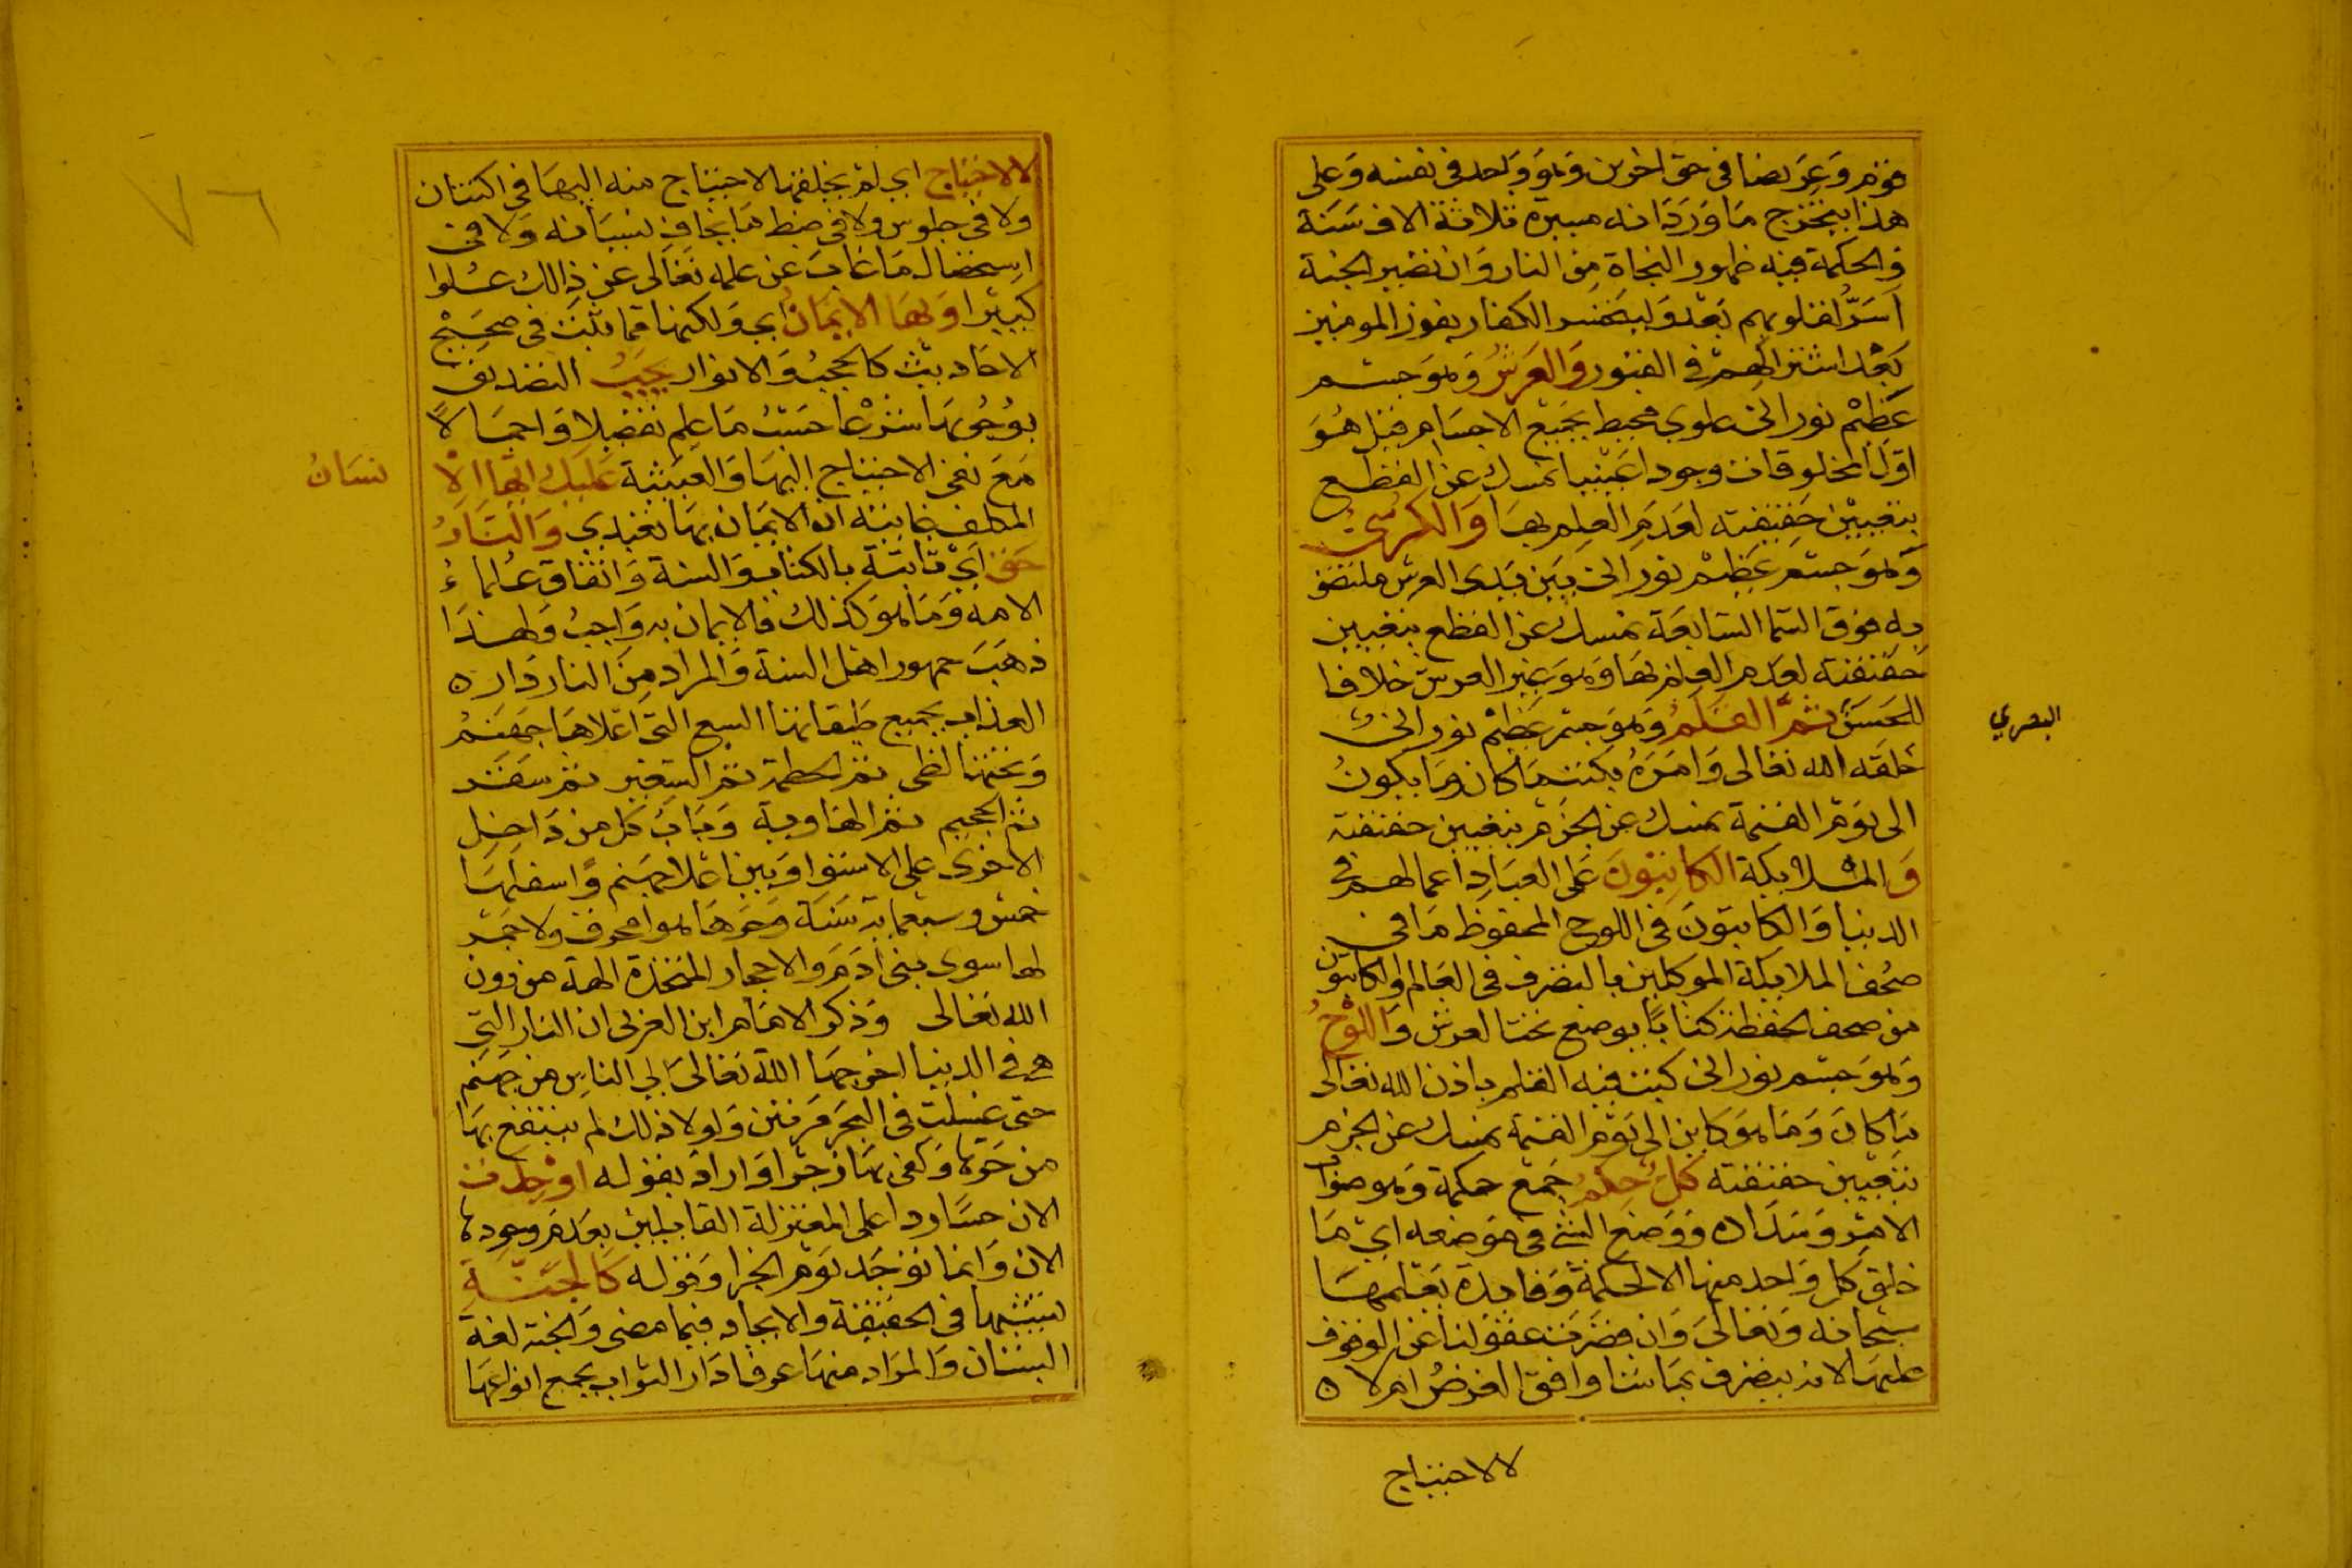 قوم وعريضا في حق اخرين وهو واحد في نفسه وعلى
هذا يتخرج ما ورد انه مسيرة ثلاثة الاف سنة
والحكمة فيه ظهور النجاة من النار وان تصير الجنة
اسر لقلوبهم بعد وليتحسر الكفار بفوز المومنين
بعد اشتراكهم في العبور والعرش وهو جسم
عظيم نوراني علوي محيط بجميع الاجسام قيل هو
اول المخلوقات وجودا عينيا نمسك عن القطع
بتعيين حقيقته لعدم العلم بها والكرسي
وهو جسم عظيم نوراني بين يدي العرش ملتصق
به فوق السما السابعة نمسك عن القطع بتعيين
حقيقته لعدم العلم بها وهو غير العرش خلافا
للحسن ثم القلم وهو جسم عظيم نوراني
البصري
خلقه الله تعالى وامره بكتب ما كان وما يكون
الى يوم القيمة نمسك عن الجزم بتعيين حقيقته
والملايكة الكاتبون على العباد اعمالهم في
الدنيا والكاتبون في اللوح المحفوظ ما في
صحف الملايكة الموكلين بالتصرف في العالم والكاتبون
من صحف الحفظة كتابا يوضع تحت العرش واللوح
وهو جسم نوراني كتب فيه القلم باذن الله تعالى
ما كان وما هو كاين الى يوم القيمة نمسك عن الجزم
بتعيين حقيقته كل حكم جمع حكمة وهو صواب
الامر وسداده ووضع الشي في موضعه اي ما
خلق كل واحد منها الا لحكمة وفايدة يعلمها
سبحانه وتعالى وان قصرت عقولنا عن الوقوف
عليها لانه يتصرف بما شا وافق الغرض ام لا ه
لا لاحتياج
لا لاحتياج اي لم يخلقها لاحتياج منه اليها في اكتنان
ولا في جلوس ولا في ضبط ما يخاف نسيانه ولا في
استحضار ما غاب عن علمه تعالى عن ذالك علوا
كبيرا وبها الايمان اي ولكنها مما ثبت في صحيح
الاحاديث كالحجب والانوار يجب التصديق
بوجودها شرعا حسب ما علم تفصيلا واجمالا
مع نفي الاحتياج اليها والعبثية عليك ايها الا
نسان
المكلف غايته ان الايمان بها تعبدي والنار
حق اي ثابتة بالكتاب والسنة واتفاق علماء
الامة وما هو كذلك فالايمان به واجب ولهذا
ذهب جمهور اهل السنة والمراد من النار دار ه
العذاب بجميع طبقاتها السبع التي اعلاها جهنم
وتحتها لظى ثم الحطمة ثم السعير ثم سقر
ثم الجحيم ثم الهاوية وباب كل من داخل
الاخرى على الاستوا وبين اعلا جهنم واسفلها
خمس وسبعماية سنة وحرها هوا محرق ولا جمر
لها سوى بني ادم والاحجار المتخذة الهة من دون
الله تعالى وذكر الامام ابن العربي ان النار التي
هي في الدنيا اخرجها الله تعالى الي الناس من جهنم
حتى غسلت في البحر مرتين ولولا ذلك لم ينتفع بها
من حرها وكفى بها زجرا واراد بقوله اوجدت
الان حسا ردا على المعتزلة القايلين بعدم وجودها
الان وانما توجد يوم الجزا وقوله كالجنة
تشبيهها في الحقيقة والايجاد فيما مضى والجنة لغة
البستان والمراد منها عرفا دار الثواب بجميع انواعها
٧٦